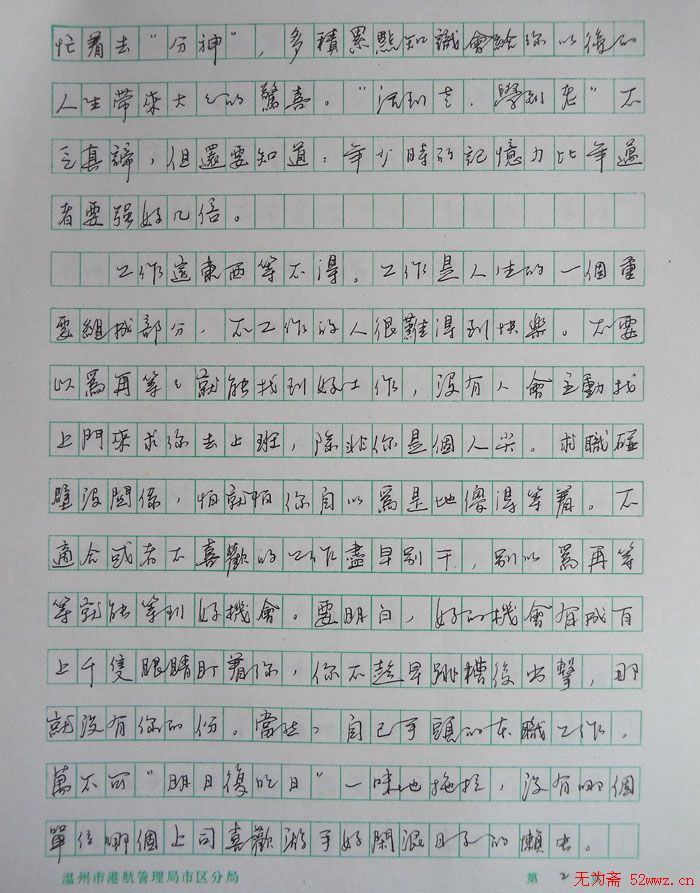 忙着去“分神”,多積累點知識會給你以後的
人生帶來大大的驚喜。“活到老,學到老”不
乏真諦,但還要知道:年少時的記憶力比年邁
者要强好几倍。
工作這東西等不得。工作是人生的一個重
要組成部分,不工作的人很難得到快樂。不要
以爲再等等就能找到好工作,没有人會主動找
上門來求你去上班,除非你是個人才。求職碰
壁没關係,怕就怕你自以爲是地傻得等着。不
適合或者不喜歡的工作盡早别干,别以爲再等
等就能等到好機會。要明白,好的機會有成百
上千隻眼睛盯着你,你不趁早跳槽後出擊,那
就没有你的份。當然,自己手頭的本職工作,
萬不可“明日復明日”一味地拖拉,没有哪個
單位哪個上司喜歡游手好閑混日子的懶虫。
温州市港航管理局市区分局 第 2 页
无为斋 52wwz.cn